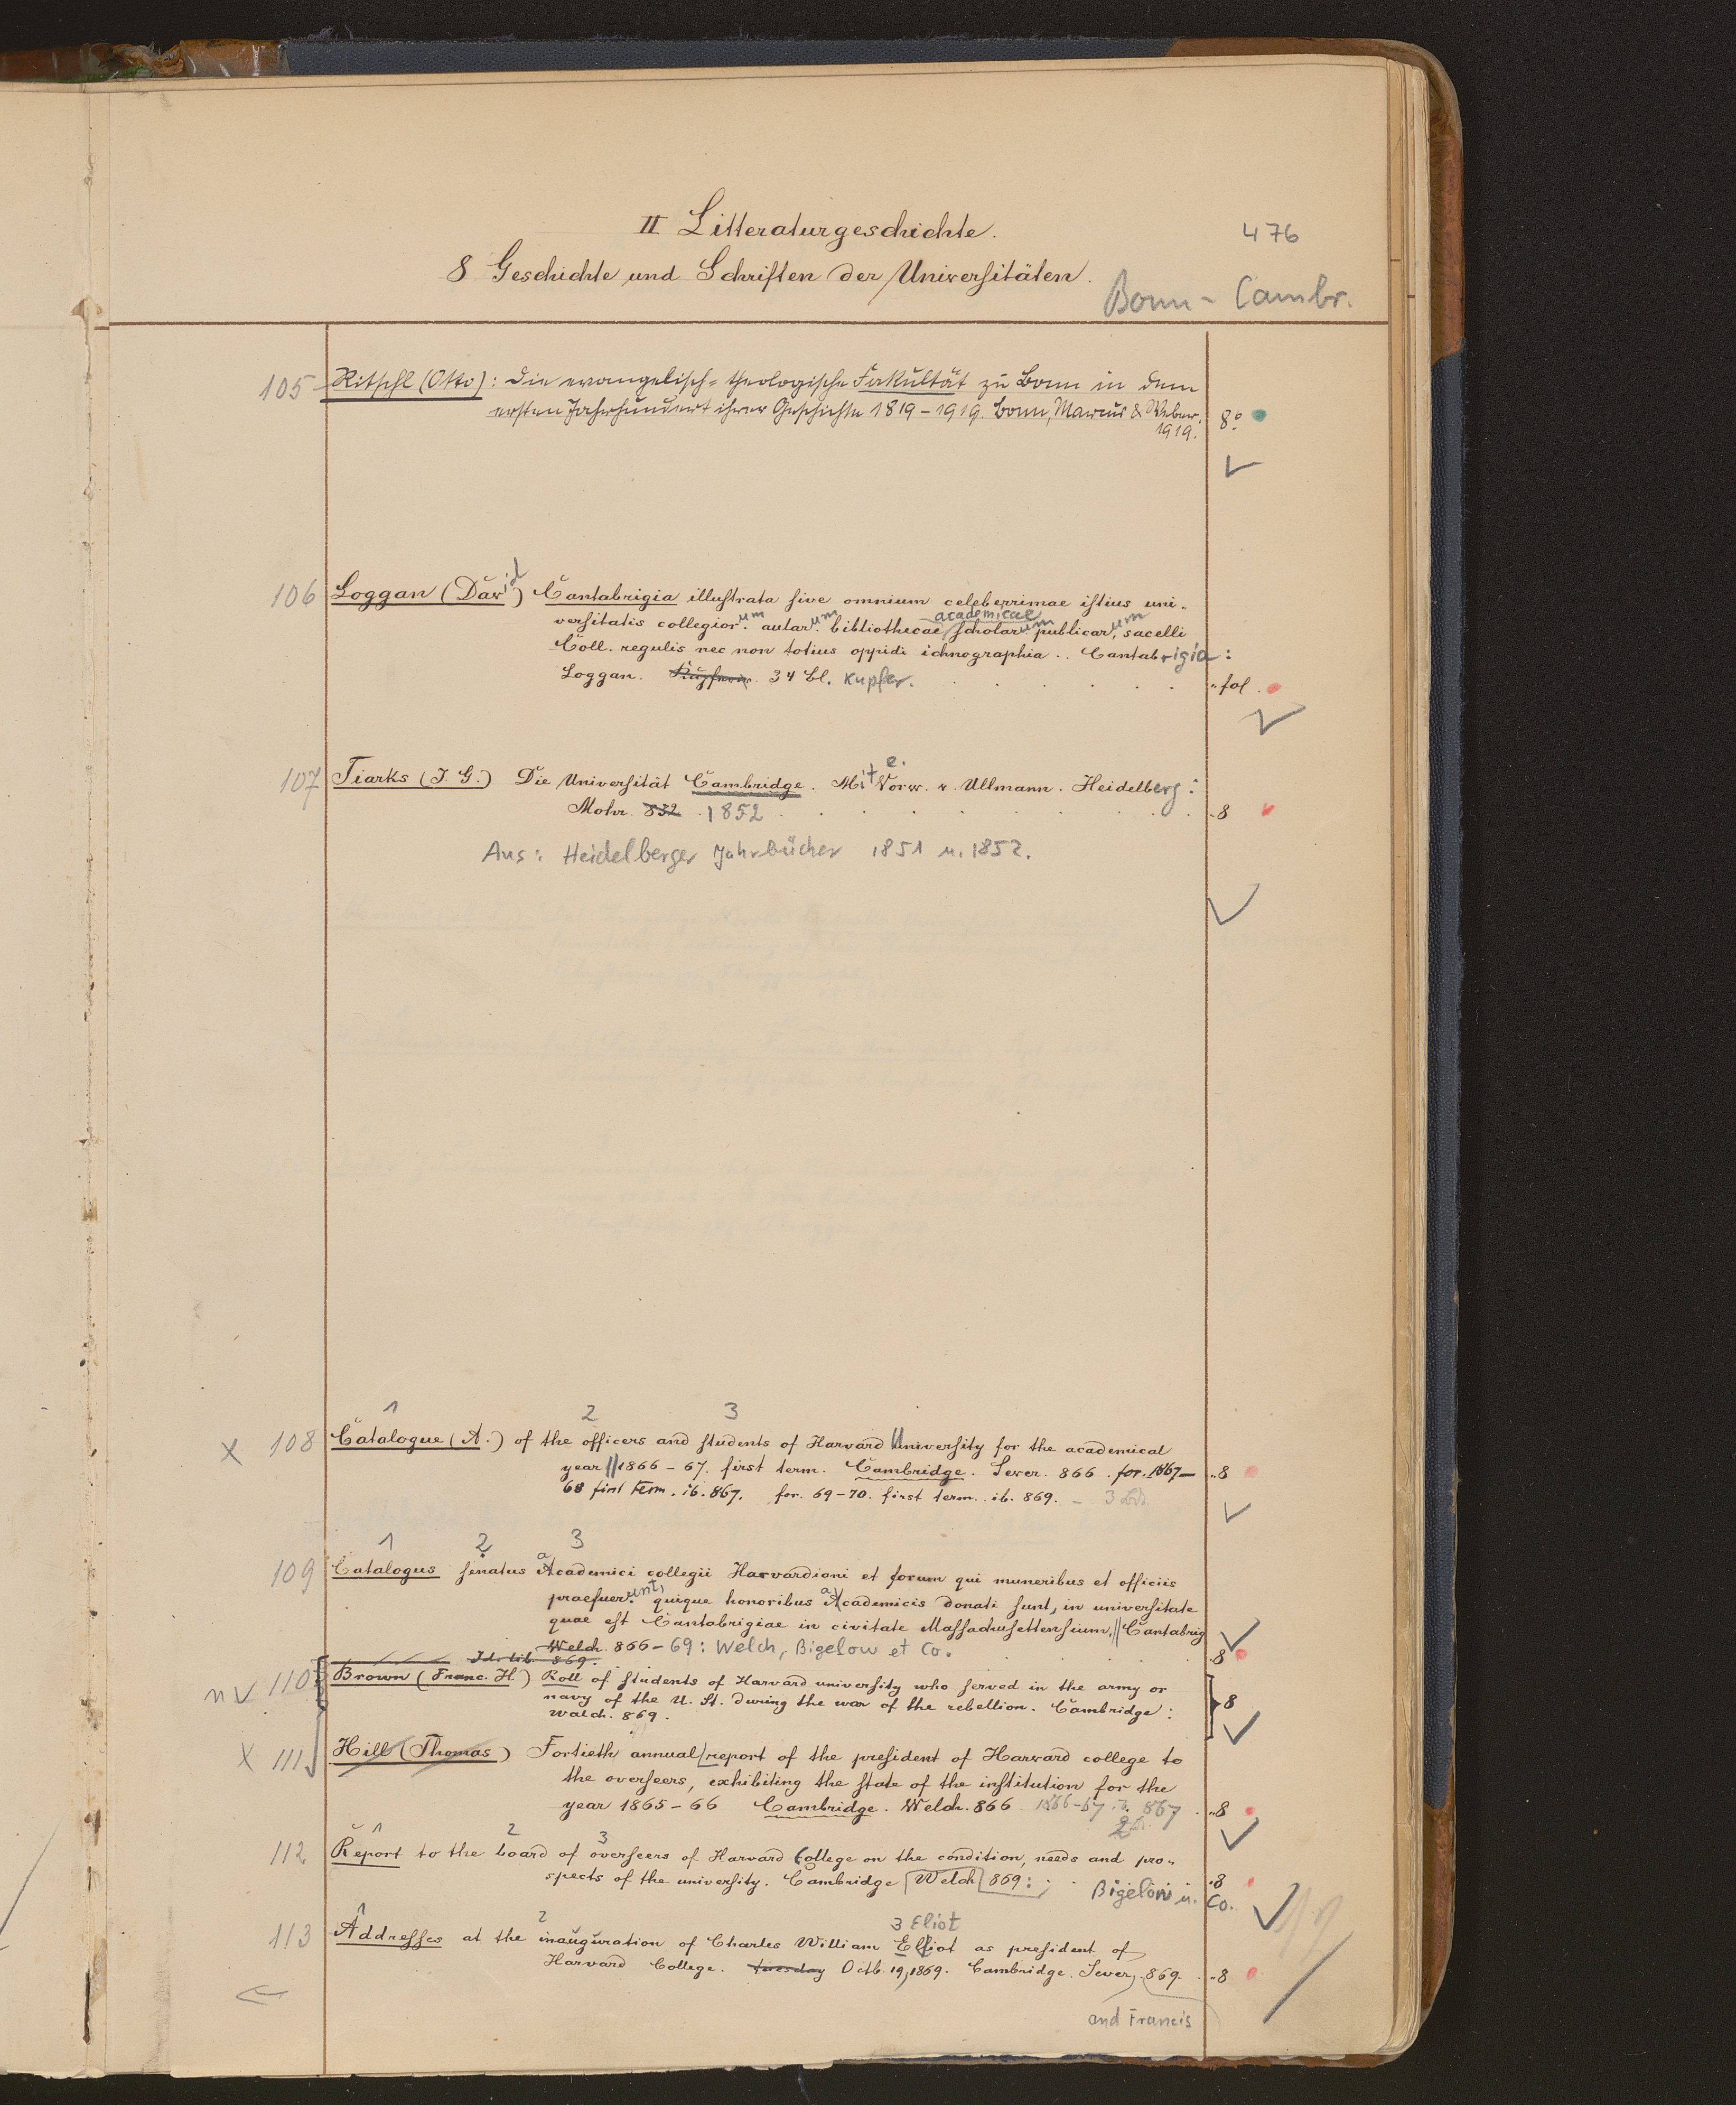 II Litteraturgeschichte.
476
8 Geschichte und Schriften der Universitäten.
Bonn - Cambr.
105 Ritschl (Otto): Die evangelisch-theologische Fakultät zu Bonn in dem
ersten Jahrhundert ihrer Geschichte 1819-1919. Bonn, Marcus & Weber.
1919. 8°
106 Loggan (David) Cantabrigia illustrata sive omnium celeberrimae istius uni-
academicae
versitatis collegiorum aularum bibliothecae scholarum publicarum, sacelli
Coll. regulis nec non totius oppidi ichnographia .. Cantabrigia:
Loggan. 34 Bl. Kupfer. fol.
107 Tiarks (J. G.) Die Universität Cambridge. Mit e. Vorw. v. Ullmann. Heidelberg:
Mohr. 832 1852 8
Aus: Heidelberger Jahrbücher 1851 u. 1852.
1 2 3
x 108 Catalogue (A.) of the officers and students of Harvard University for the academical
year || 1866-67. first term. Cambridge. Sever. 866. for. 1867- 8
68 first term. ib. 867. for. 69-70. first term. ib. 869. - 3 Bde.
1 2 3
109 Catalogus senatus academici collegii Harvardiani et eorum qui muneribus et officiis
praefuerunt, quique honoribus academicis donati sunt, in universitate
quae est Cantabrigiae in civitate Massachusettensium. || Cantabrig
Welch. 866-69: Welch, Bigelow et Co. 8
Id. lib. 869.
n 110 Brown (Franc. H) Roll of students of Harvard university who served in the army or
navy of the U. St. during the war of the rebellion. Cambridge: 8
Welch. 869.
x 111 Hill (Thomas) Fortieth annual report of the president of Harvard college to
the overseers, exhibiting the state of the institution for the
year 1865-66 Cambridge. Welch. 866 1866-67. ib. 867. 8
2
1 2 3
112 Report to the board of overseers of Harvard College on the condition, needs and pro-
spects of the university. Cambridge Welch 869: 8
Bigelow u. Co.
1 2 3 Eliot
113 Addresses at the inauguration of Charles William Elliot as president of
Harvard College. tuesday Octb. 19, 1869. Cambridge. Sever, 869. 8
and Francis